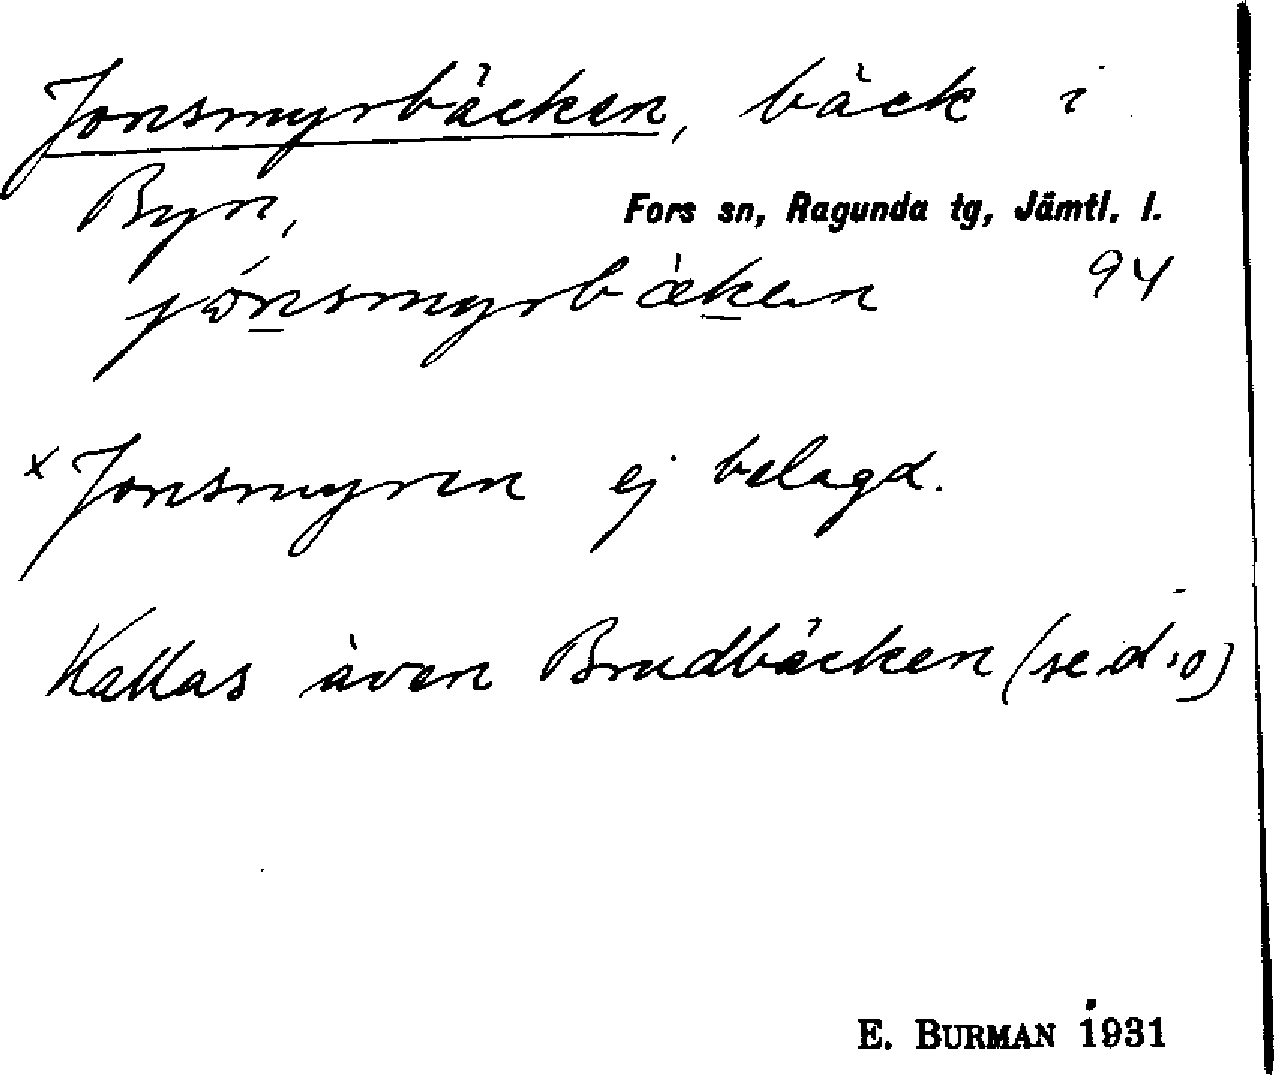 Jonsmyrbäcken, bäck i
Byn, Fors sn, Ragunda tg, Jämtl. l.
jónsmyrbæken 94
x Jonsmyren ej belagd.
Kallas även Brudbäcken (se d:o)
E. BURMAN 1931